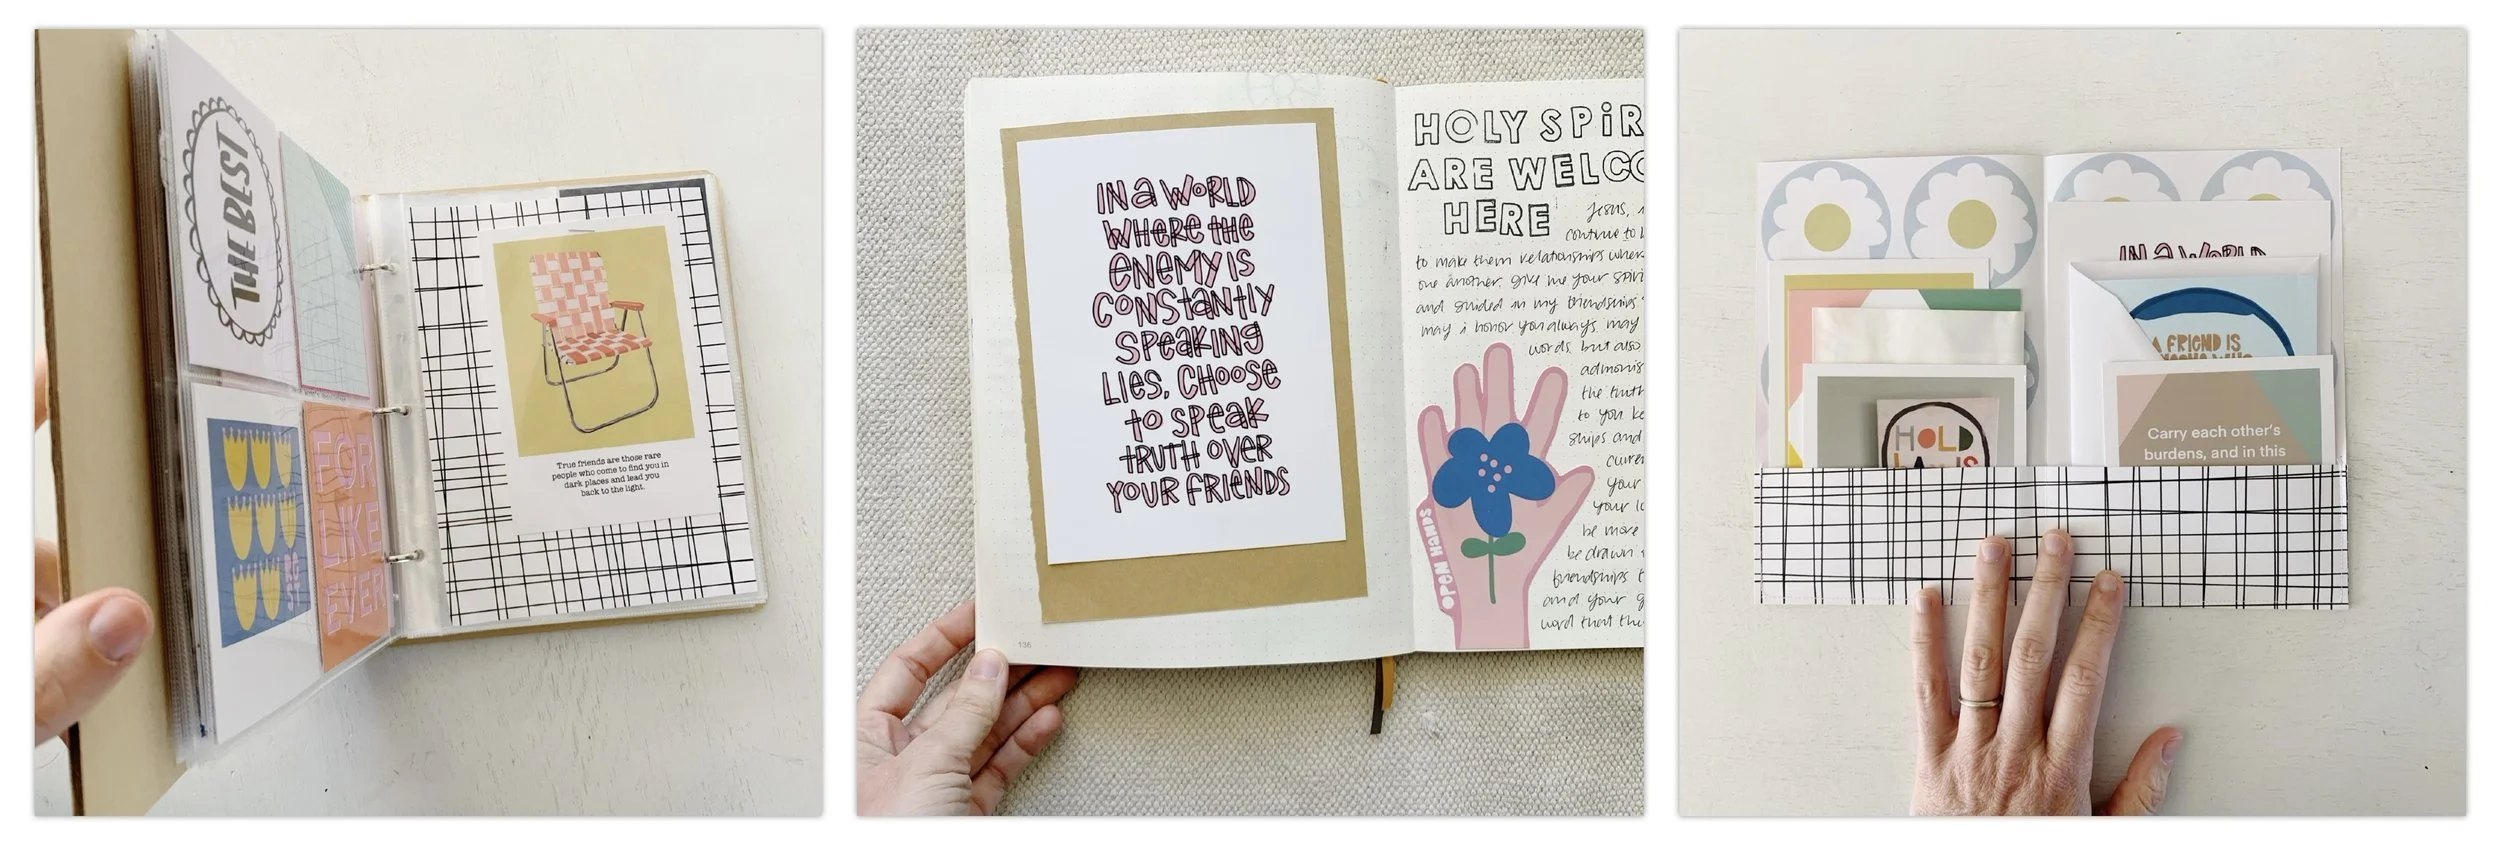 THE BEST
FOR
LIKE
EVER
True friends are those rare
people who come to find you in
dark places and lead you
back to the light.
IN a WORLD
WHERE the
ENEMY IS
CONStantly
SPEaKING
LIES, CHOOSE
to SPEaK
tRUtH OVER
YOUR FRIENDS
136
HOLY SPiR
ARE WELCO
HERE
Jesus,
continue to
to make them relationships wher
one another. give me your spiri
and guided in my friendships
may i honor you always. may
words, but also
admonis
the truth
to you ke
ships and
curre
your
your lo
be more
be drawn
friendships t
and your g
word that the
OPEN HANDS
IN a WORLD
A FRIEND IS
HOLD
Carry each other's
burdens, and in this